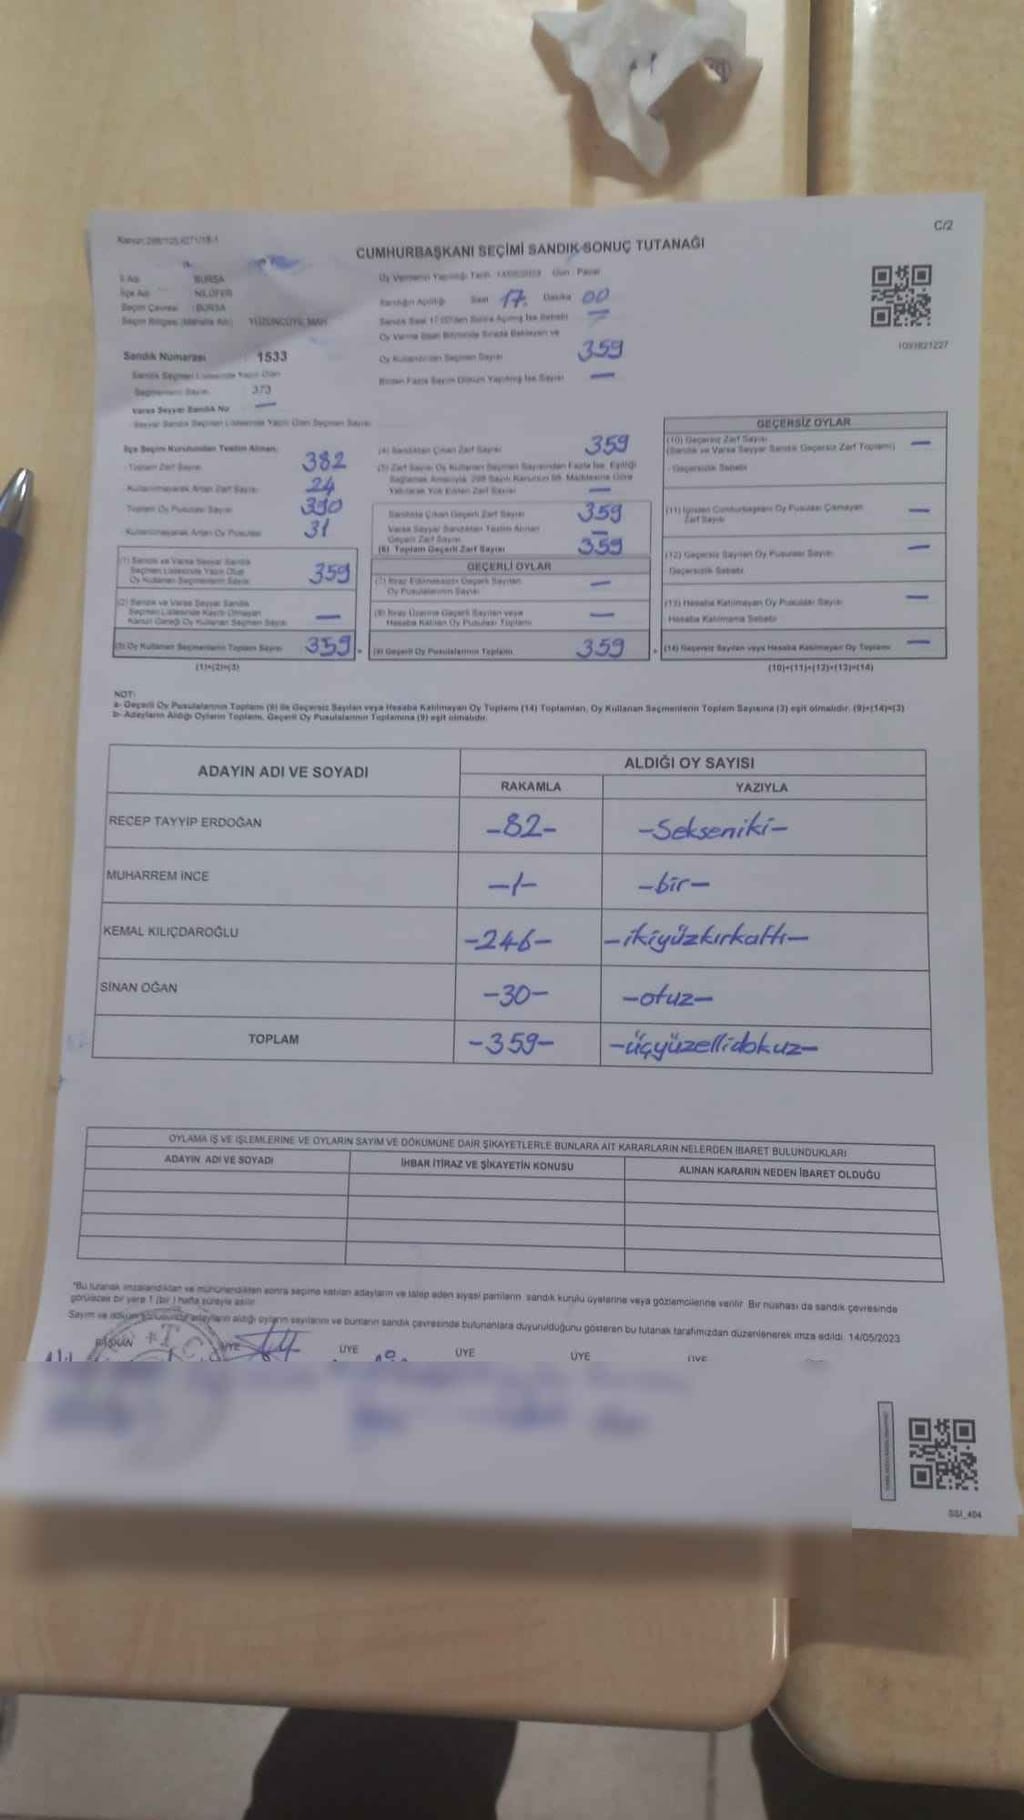 C/2
CUMHURBAŞKANI SEÇİMİ SANDIK SONUÇ TUTANAĞI
İl Adı : BURSA
İlçe Adı : NİLÜFER
Seçim Çevresi : BURSA
Seçim Bölgesi (Mahalle Adı) : YÜZÜNCÜYIL MAH.
Sandık Numarası 1533
Sandık Seçmen Listesinde Yazılı Olan
Seçmenlerin Sayısı 373
Varsa Seyyar Sandık No —
Seyyar Sandık Seçmen Listesinde Yazılı Olan Seçmen Sayısı
Oy Vermenin Yapıldığı Tarih 14/05/2023 Gün : Pazar
Sandığın Açıldığı Saat 17. Dakika 00
Oy Kullandırılan Seçmen Sayısı 359
Birden Fazla Sayım Döküm Yapılmış İse Sayısı —
İlçe Seçim Kurulundan Teslim Alınan;
Toplam Zarf Sayısı 382
Kullanılmayarak Artan Zarf Sayısı 24
Toplam Oy Pusulası Sayısı 390
Kullanılmayarak Artan Oy Pusulası 31
(1) Sandık ve Varsa Seyyar Sandık
Seçmen Listesinde Yazılı Olup
Oy Kullanan Seçmenlerin Sayısı 359
(2) Sandık ve Varsa Seyyar Sandık
Seçmen Listesinde Kayıtlı Olmayan
Kanun Gereği Oy Kullanan Seçmen Sayısı —
(3) Oy Kullanan Seçmenlerin Toplam Sayısı 359
(1)+(2)=(3)
(4) Sandıktan Çıkan Zarf Sayısı 359
(5) Zarf Sayısı Oy Kullanan Seçmen Sayısından Fazla İse, Eşitliği
Sağlamak Amacıyla, 298 Sayılı Kanunun 98. Maddesine Göre
Yakılarak Yok Edilen Zarf Sayısı —
Sandıkta Çıkan Geçerli Zarf Sayısı 359
Varsa Seyyar Sandıktan Teslim Alınan
Geçerli Zarf Sayısı —
(6) Toplam Geçerli Zarf Sayısı 359
GEÇERLİ OYLAR
(7) İtiraz Edilmeksizin Geçerli Sayılan
Oy Pusulalarının Sayısı —
(8) İtiraz Üzerine Geçerli Sayılan veya
Hesaba Katılan Oy Pusulası Toplamı —
(9) Geçerli Oy Pusulalarının Toplamı 359
GEÇERSİZ OYLAR
(10) Geçersiz Zarf Sayısı —
(Sandık ve Varsa Seyyar Sandık Geçersiz Zarf Toplamı)
Geçersizlik Sebebi
(11) İçinden Cumhurbaşkanı Oy Pusulası Çıkmayan
Zarf Sayısı —
(12) Geçersiz Sayılan Oy Pusulası Sayısı —
Geçersizlik Sebebi
(13) Hesaba Katılmayan Oy Pusulası Sayısı —
Hesaba Katılmama Sebebi
(14) Geçersiz Sayılan veya Hesaba Katılmayan Oy Toplamı —
(10)+(11)+(12)+(13)=(14)
NOT:
a- Geçerli Oy Pusulalarının Toplamı (9) ile Geçersiz Sayılan veya Hesaba Katılmayan Oy Toplamı (14) Toplamları, Oy Kullanan Seçmenlerin Toplam Sayısına (3) eşit olmalıdır. (9)+(14)=(3)
b- Adayların Aldığı Oyların Toplamı, Geçerli Oy Pusulalarının Toplamına (9) eşit olmalıdır.
ADAYIN ADI VE SOYADI
ALDIĞI OY SAYISI
RAKAMLA YAZIYLA
RECEP TAYYİP ERDOĞAN -82- -Sekseniki-
MUHARREM İNCE -1- -bir-
KEMAL KILIÇDAROĞLU -246- -ikiyüzkırkaltı-
SİNAN OĞAN -30- -otuz-
TOPLAM -359- -üçyüzellidokuz-
OYLAMA İŞ VE İŞLEMLERİNE VE OYLARIN SAYIM VE DÖKÜMÜNE DAİR ŞİKAYETLERLE BUNLARA AİT KARARLARIN NELERDEN İBARET BULUNDUKLARI
ADAYIN ADI VE SOYADI İHBAR İTİRAZ VE ŞİKAYETİN KONUSU ALINAN KARARIN NEDEN İBARET OLDUĞU
*Bu tutanak imzalandıktan ve mühürlendikten sonra seçime katılan adayların ve talep eden siyasi partilerin sandık kurulu üyelerine veya gözlemcilerine verilir. Bir nüshası da sandık çevresinde
görülecek bir yere 1 (bir) hafta süreyle asılır.
Sayım ve döküm sonucunda adayların aldığı oyların sayılarını ve bunların sandık çevresinde bulunanlara duyurulduğunu gösteren bu tutanak tarafımızdan düzenlenerek imza edildi. 14/05/2023
BAŞKAN ÜYE ÜYE ÜYE ÜYE ÜYE
T.C.